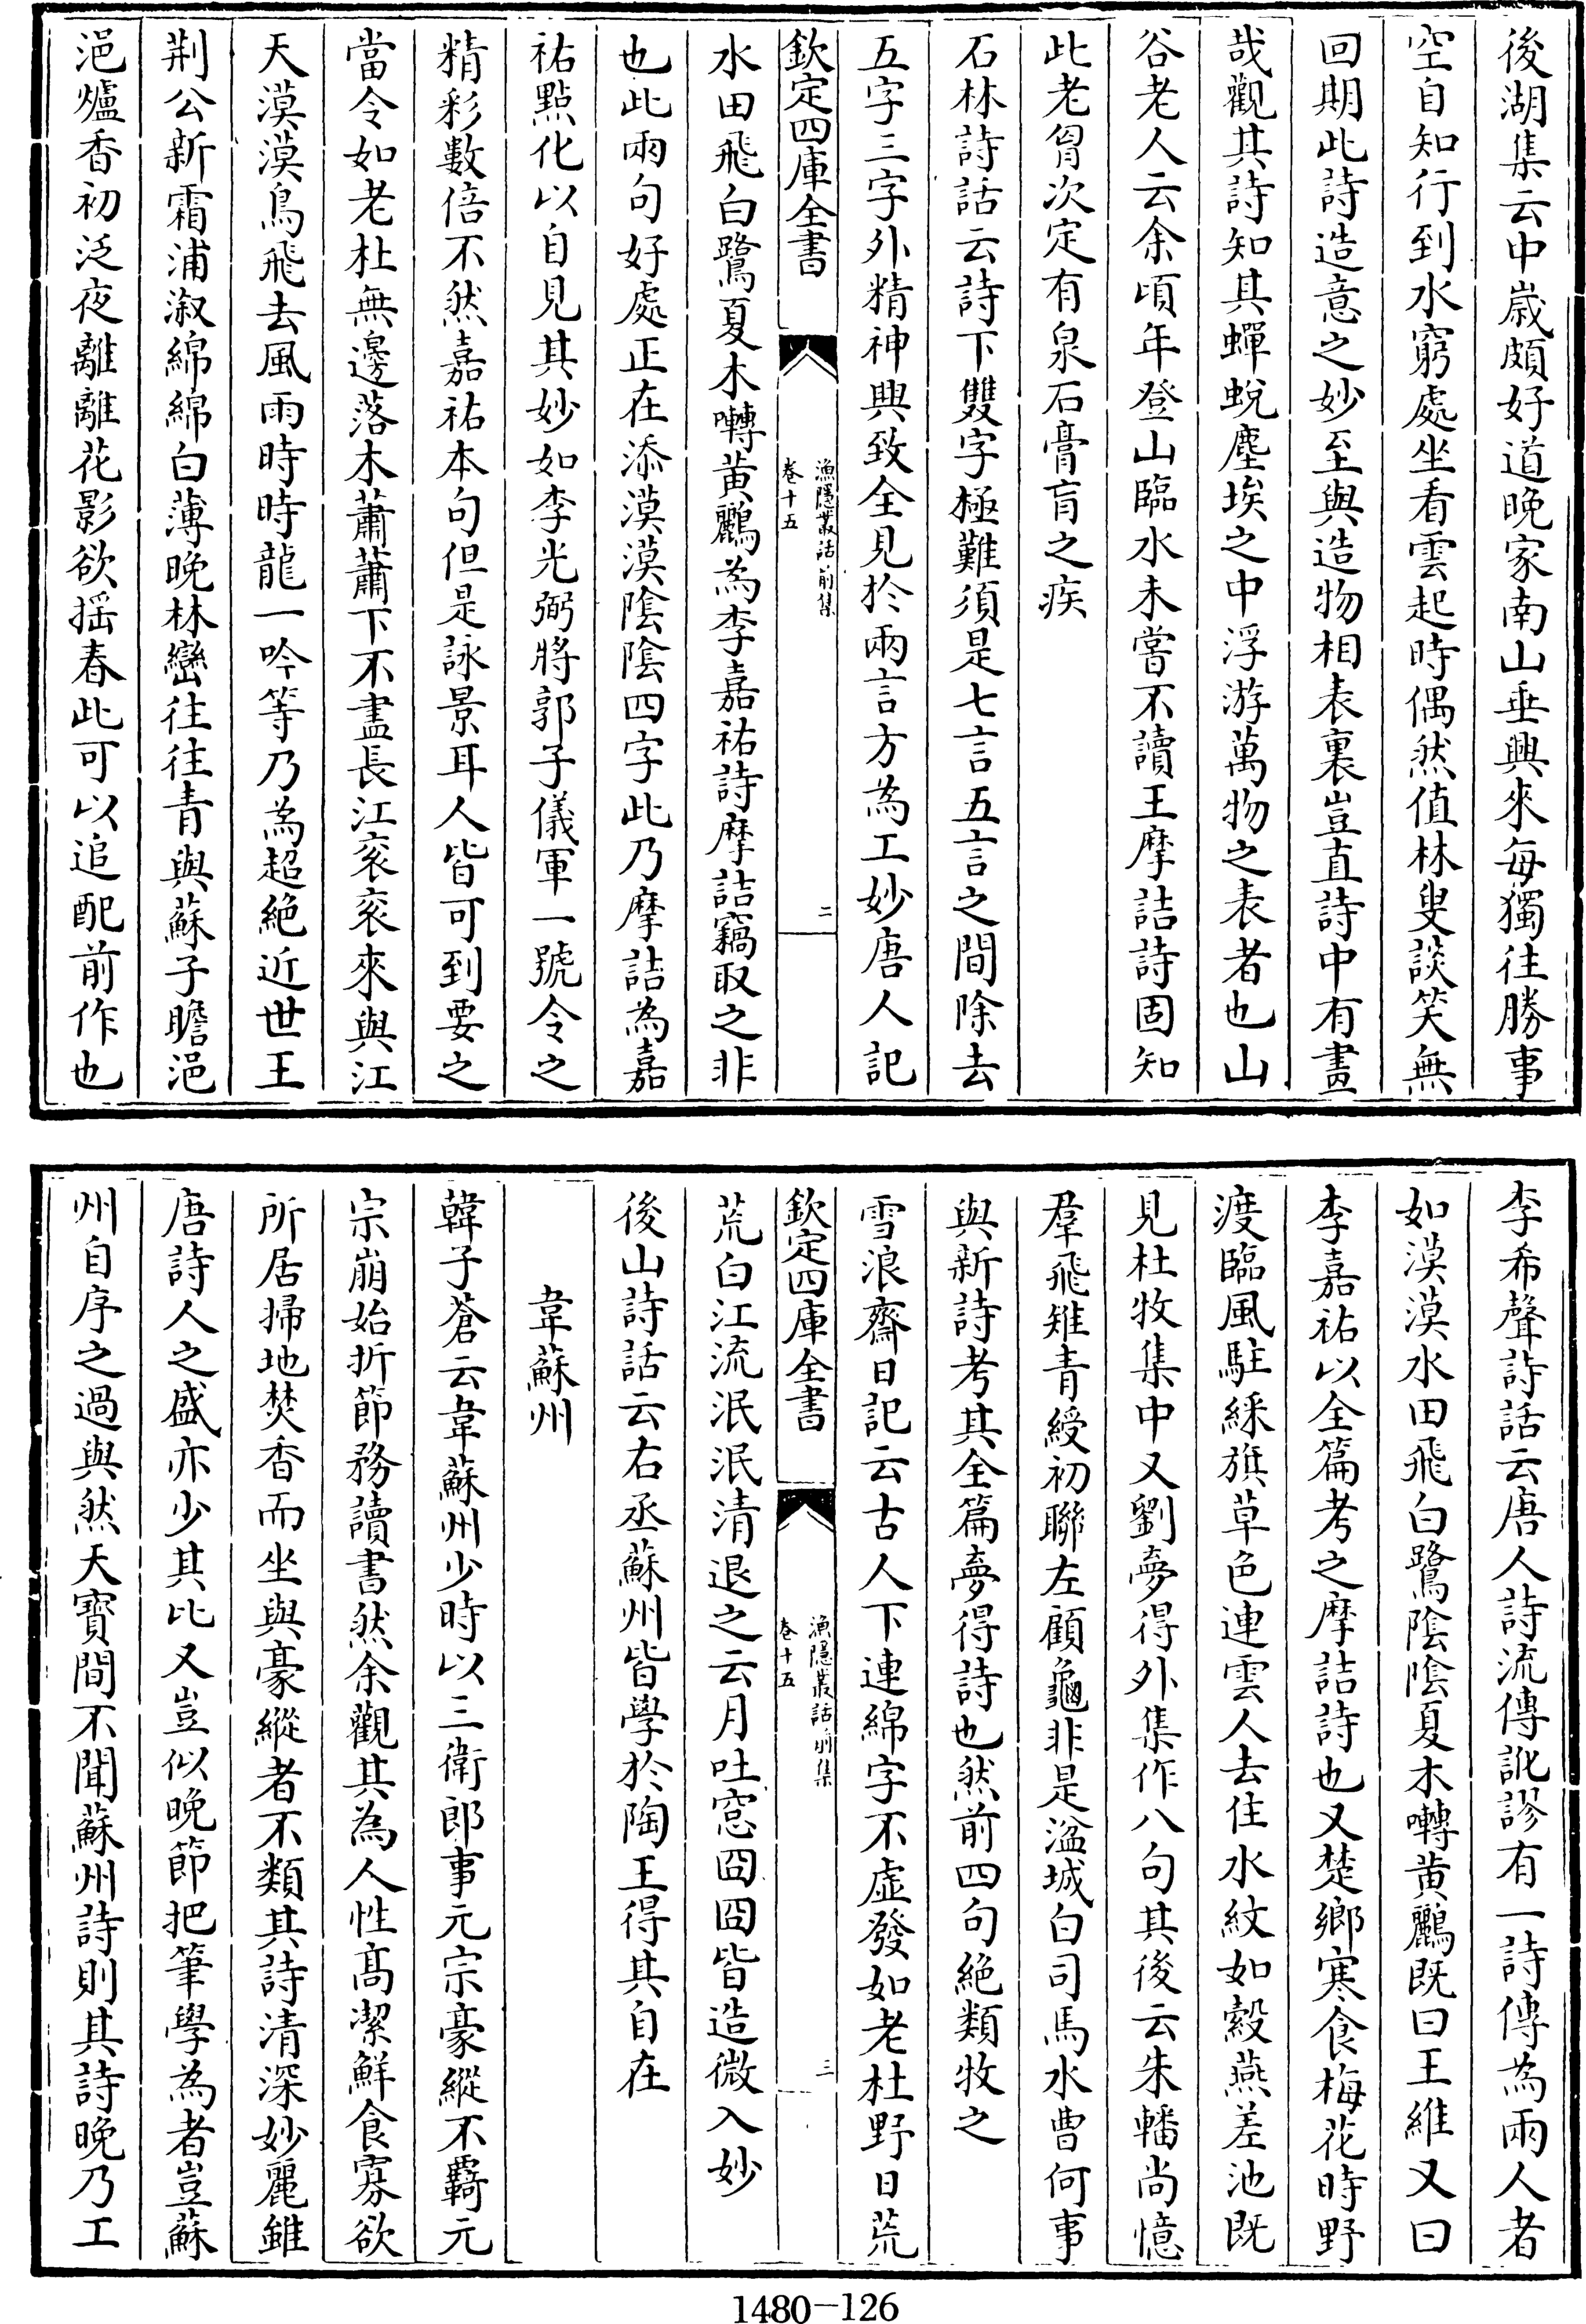 後湖集云中嵗頗好道晚家南山垂興來每獨徃勝事
空自知行到水窮處坐看雲起時偶然值林叟談笑無
回期此詩造意之妙至與造物相表裏豈直詩中有畫
哉觀其詩知其蟬蛻塵埃之中浮游萬物之表者也山
谷老人云余頃年登山臨水未嘗不讀王摩詰詩固知
此老胷次定有泉石膏肓之疾
石林詩話云詩下雙字極難須是七言五言之間除去
五字三字外精神興致全見於兩言方為工妙唐人記
欽定四庫全書
漁隱叢話前集
卷十五
二
水田飛白鷺夏木囀黄鸝為李嘉祐詩摩詰竊取之非
也此兩句好處正在添漠漠陰陰四字此乃摩詰為嘉
祐點化以自見其妙如李光弼將郭子儀軍一號令之
精彩數倍不然嘉祐本句但是詠景耳人皆可到要之
當令如老杜無邊落木蕭蕭下不盡長江衮衮來與江
天漠漠鳥飛去風雨時時龍一吟等乃為超絶近世王
荆公新霜浦溆綿綿白薄晚林巒徃徃青與蘇子瞻浥
浥爐香初泛夜離離花影欲揺春此可以追配前作也
李希聲詩話云唐人詩流傳訛謬有一詩傳為兩人者
如漠漠水田飛白鷺陰陰夏木囀黄鸝既曰王維又曰
李嘉祐以全篇考之摩詰詩也又楚鄉寒食梅花時野
渡臨風駐綵旗草色連雲人去住水紋如縠燕差池既
見杜牧集中又劉夢得外集作八句其後云朱轓尚憶
羣飛雉青綬初聯左顧龜非是湓城白司馬水曹何事
與新詩考其全篇夢得詩也然前四句絶類牧之
雪浪齋日記云古人下連綿字不虛發如老杜野日荒
欽定四庫全書
漁隱叢話前集
卷十五
三
荒白江流泯泯清退之云月吐窓冏冏皆造微入妙
後山詩話云右丞蘇州皆學於陶王得其自在
韋蘇州
韓子蒼云韋蘇州少時以三衛郎事元宗豪縱不羇元
宗崩始折節務讀書然余觀其為人性髙潔鮮食寡欲
所居掃地焚香而坐與豪縱者不類其詩清深妙麗雖
唐詩人之盛亦少其比又豈似晚節把筆學為者豈蘇
州自序之過與然天寳間不聞蘇州詩則其詩晚乃工
1480—126